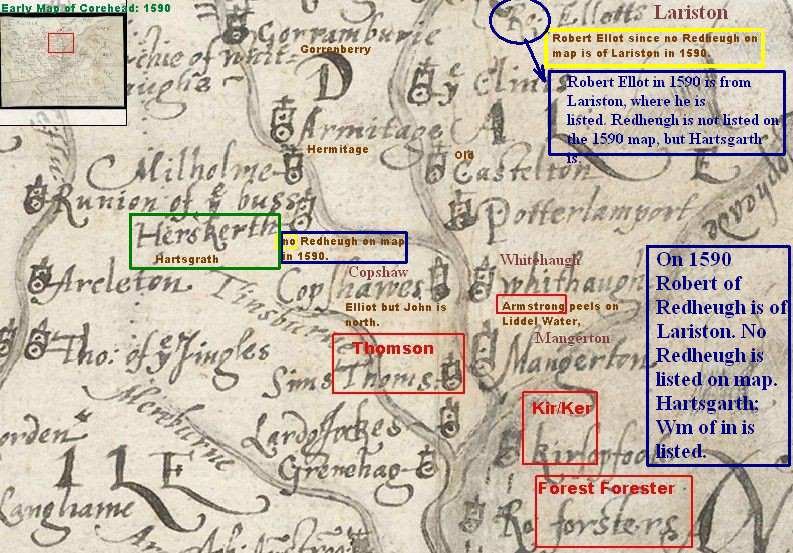 Early Map of Corehead: 1590
Ro: Ellotts
Lariston
Robert Ellot since no Redheugh on
map is of Lariston in 1590.
Gorramburie
Gorrenberry
Robert Ellot in 1590 is from
Lariston, where he is
listed. Redheugh is not listed on
the 1590 map, but Hartsgarth
is.
D
Armitage
Hermitage
Old
Castelton
Milholme
Runion of ye buss
Potterlamport
Herskerth
Hartsgrath
no Redheugh on map
in 1590.
Whitehaugh
whithaugh
Copshaw
Copshawes
Arcleton
Tinisburn
Elliot but John is
north.
Armstrong peels on
Liddel Water,
Mangerton
Mangerton
On 1590
Robert of
Redheugh is of
Lariston. No
Redheugh is
listed on map.
Hartsgarth;
Wm of in is
listed.
Tho: of ye Jingles
Thomson
Sims Thoms.
Kir/Ker
Kirsopfoote
Grenehag
I L E
Langhame
Forest Forester
Ro: forsters
N